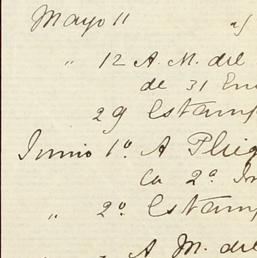 Mayo 11
" 12 A. M. del
de 31 Ene
29 Estamp
Junio 1º. A Plieg
la 2ª In
" 2º. Estamp
A M. del